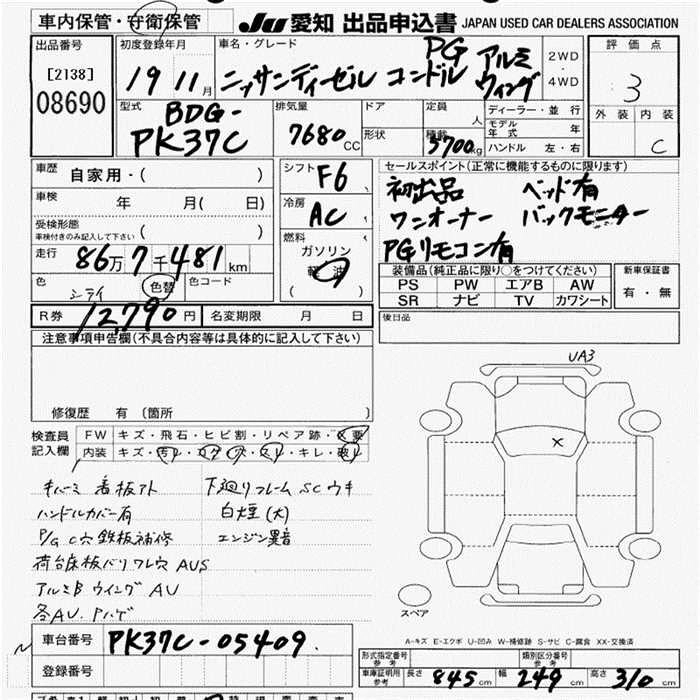 車内保管・守衛保管
JU 愛知 出品申込書 JAPAN USED CAR DEALERS ASSOCIATION
出品番号 [2138] 08690
初度登録年月 19 11月
車名・グレード ニッサンディーゼル コンドル PG アルミウィング
2WD・4WD
評価点 3
外装 内装 C
型式 BDG-PK37C
排気量 7680 CC
ドア 形状
定員 人
積載 5700kg
ディーラー・並行
モデル年式 年
ハンドル 左・右
車歴 自家用・( )
車検 年 月( 日)
受検形態 車検付きのみ記入して下さい ( )
走行 86万7千481km
色 シロイ 色替 色コード
R券 12,790円 名変期限 月 日
シフト F6
冷房 AC
燃料 ガソリン 軽油 ( )
セールスポイント(正常に機能するものに限ります)
初出品 ベッド有
ワンオーナー バックモニター
PGリモコン有
装備品(純正品に限り○をつけてください)
PS PW エアB AW
SR ナビ TV カワシート
新車保証書 有・無
後日品
注意事項申告欄(不具合内容等は具体的に記入して下さい)
修復歴 有 (箇所 )
検査員記入欄
FW キズ・飛石・ヒビ割・リペア跡・X要
内装 キズ・汚レ・コゲ・穴・スレ・キレ・破レ
キバミ 看板アト 下廻りフレームSCウキ
ハンドルカバー有 白煙(大)
P/G C穴 鉄板補修 エンジン異音
荷台床板バリワレ穴 AUS
アルミB ウイング AU
各AU. Pハゲ
UA3
×
スペア
A-キズ E-エクボ U-凹み W-補修跡 S-サビ C-腐食 XX-交換済
車台番号 PK37C-05409
登録番号
型式指定番号 参考
類別区分番号 参考
車庫証明用 参考 長さ 845cm 幅 249cm 高さ 310cm